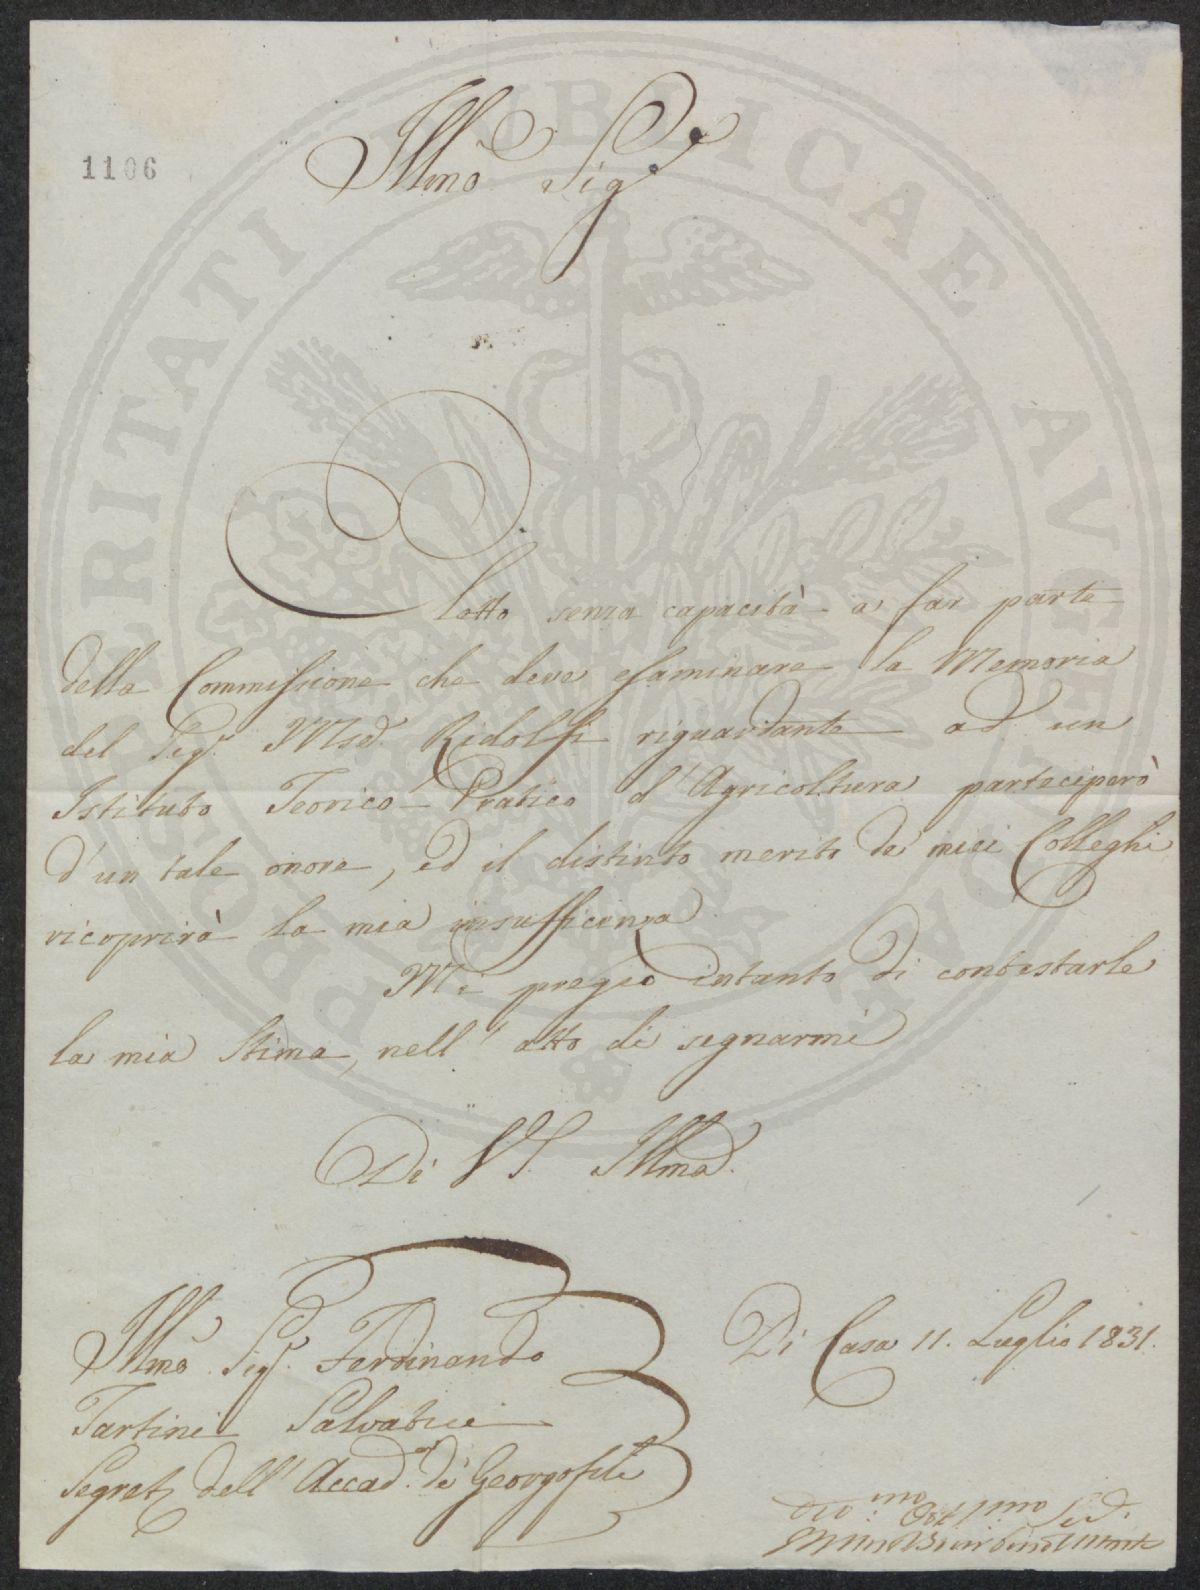 1106
Illmo Sigre
Eletto senza capacità a far parte
della Commissione che deve esaminare la Memoria
del Sigr. Mse. Ridolfi riguardante ad un
Istituto Teorico-Pratico d'Agricoltura parteciperò
d'un tale onore, ed il distinto merito de' miei Colleghi
ricoprirà la mia insufficenza
Mi pregio intanto di contestarle
la mia Stima, nell'atto di segnarmi
Di VS. Illma.
Illmo Sigr. Ferdinando
Tartini Salvatici
Segret. dell'Accad. de' Georgofili
Di Casa 11. Luglio 1831.
PROSPERITATI PUBLICAE AUGENDAE